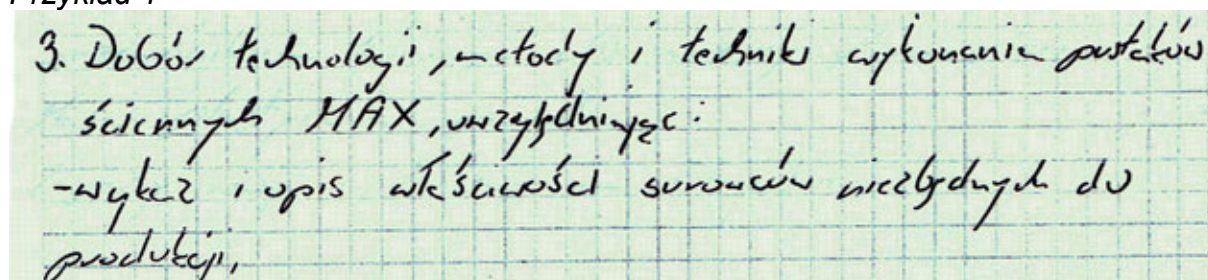 Przykład 1
3. Dobór technologi, metody i techniki wykonania pustaków
ściennych MAX, uwzględniając:
-wykaz i opis właściwości surowców niezbędnych do
produkcji,